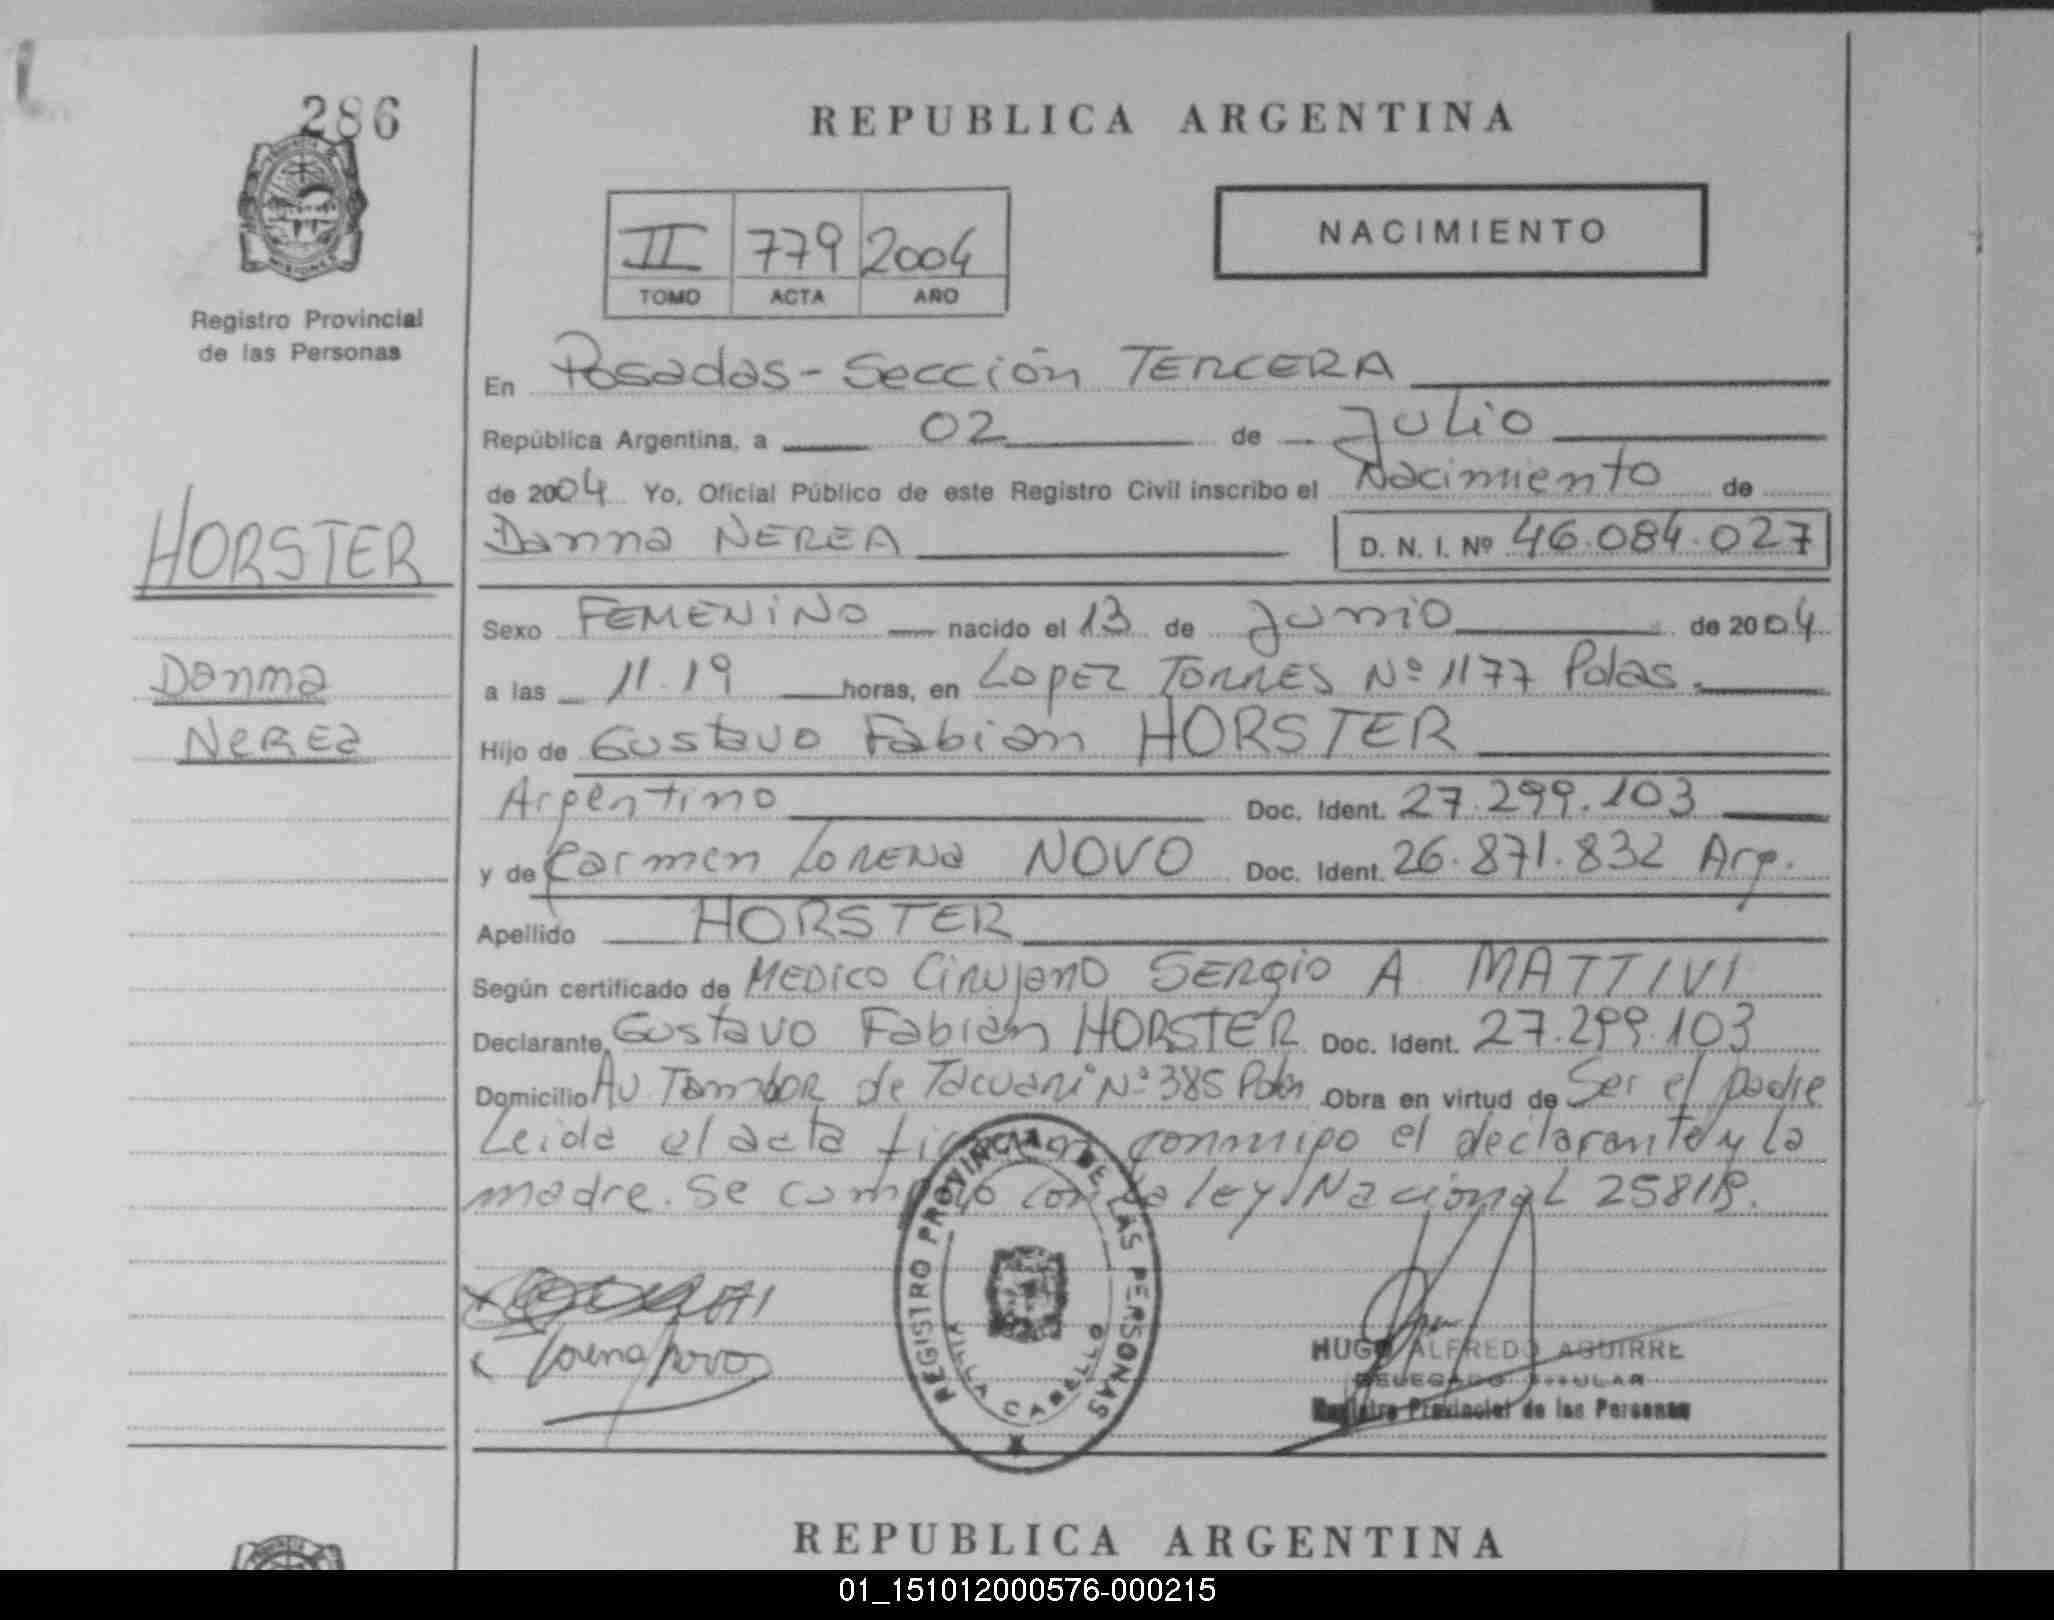 286
Registro Provincial
de las Personas
HORSTER
Danna
NEREA
REPUBLICA ARGENTINA
II 779 2004
TOMO ACTA AÑO
NACIMIENTO
En Posadas - Sección TERCERA
República Argentina, a 02 de Julio
de 2004 Yo, Oficial Público de este Registro Civil inscribo el Nacimiento de
Danna NEREA D. N. I. Nº 46.084.027
Sexo FEMENINO nacido el 13 de Junio de 2004
a las 11.19 horas, en LOPEZ TORRES Nº 1177 Pdas.
Hijo de Gustavo Fabian HORSTER
Argentino Doc. Ident. 27.299.103
y de Carmen LORENA NOVO Doc. Ident. 26.871.832 Arg.
Apellido HORSTER
Según certificado de MEDICO Cirujano SERGIO A. MATTIVI
Declarante Gustavo Fabian HORSTER Doc. Ident. 27.299.103
Domicilio Av Tambor de Tacuari Nº 385 Pdas Obra en virtud de Ser el padre
Leida el acta firman conmigo el declarante y la
madre. Se cumplio con la ley Nacional 25819.
REGISTRO PROVINCIAL DE LAS PERSONAS
VILLA CABELLO
Lorena Novo
HUGO ALFREDO AGUIRRE
DELEGADO TITULAR
Registro Provincial de las Personas
REPUBLICA ARGENTINA
01_151012000576-000215